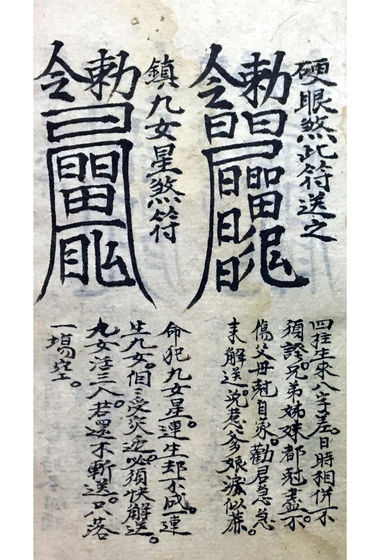 硬眼煞此符送之
勅令
四柱生來八字差。日時相併不
須誇。兄弟姊妹都尅盡。不
傷父母尅自家。勸君急急
來解送。惹爹娘淚似蔴
鎮九女星煞符
勅令
命犯九女星。連生却不成。連
生九女。個々受災迍。必須快解送。
九女活三人。若還不暫送。只落
一場空。